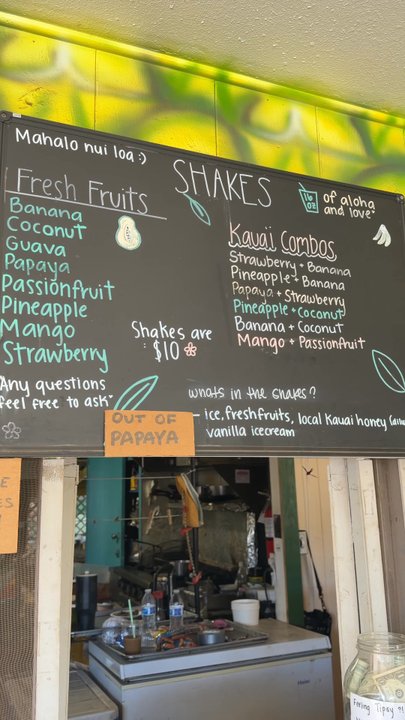 Mahalo nui loa :)
SHAKES
16 oz
of aloha
and love"
Fresh Fruits
Banana
Coconut
Guava
Papaya
Passionfruit
Pineapple
Mango
Strawberry
Kauai Combos
Strawberry + Banana
Pineapple + Banana
Papaya + Strawberry
Pineapple + Coconut
Banana + Coconut
Mango + Passionfruit
Shakes are
$10
"Any questions
feel free to ask"
whats in the shakes?
- ice, fresh fruits, local Kauai honey
vanilla icecream
OUT OF
PAPAYA
Feeling Tipsy ?!